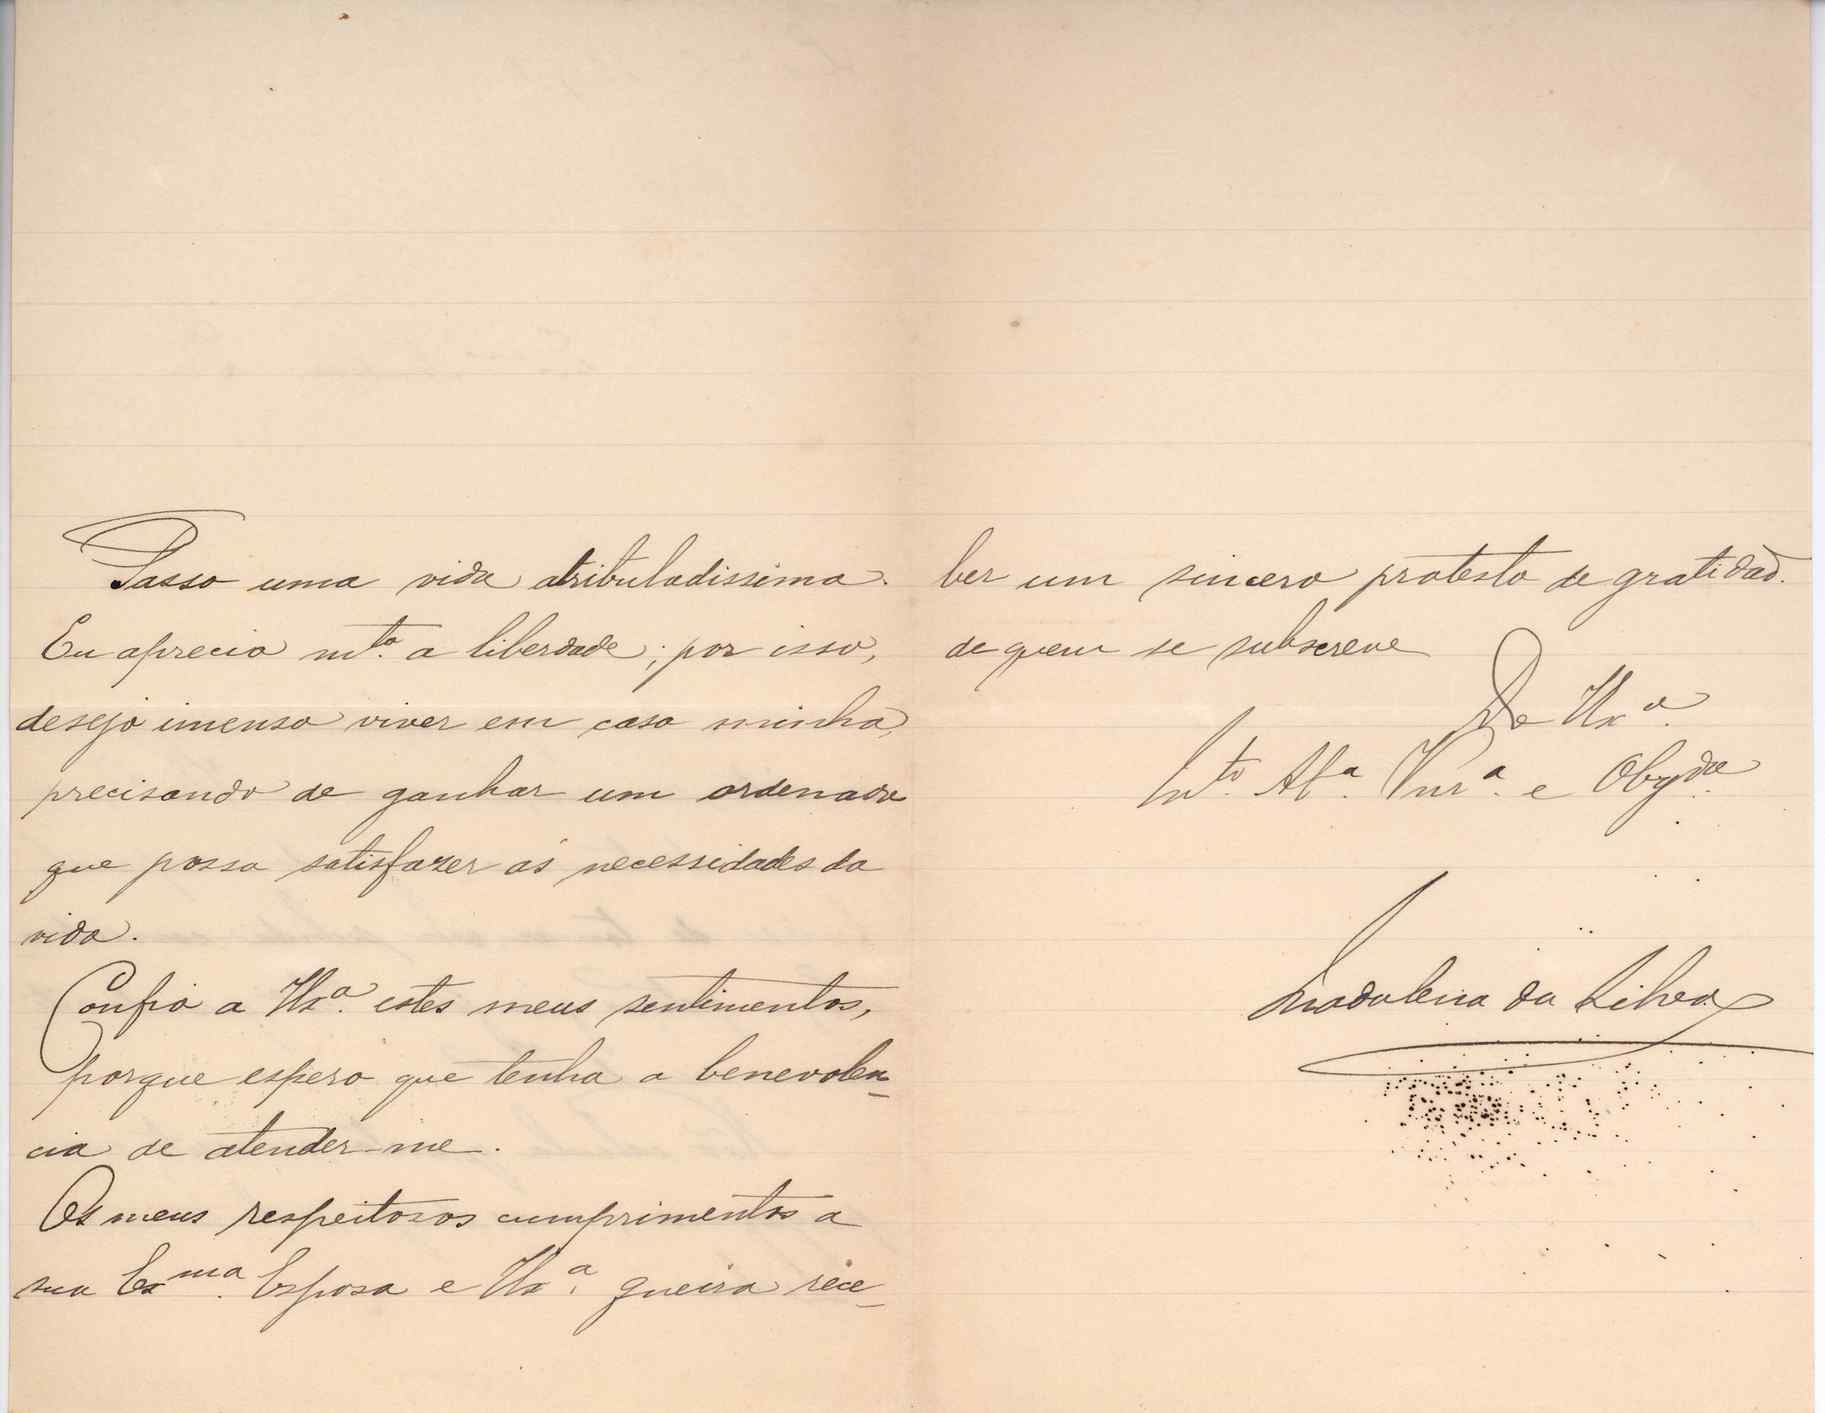 Passo uma vida atribuladissima.
Eu aprecio mto. a liberdade; por isso,
desejo imenso viver em casa minha,
precisando de ganhar um ordenado
que possa satisfazer ás necessidades da
vida.
Confio a Vxa. estes meus sentimentos,
porque espero que tenha a benevolen-
cia de atender-me.
Os meus respeitosos cumprimentos a
sua Exma. Esposa e Vxa. queira rece-
ber um sincero protesto de gratidão.
de quem se subscreve
De Vxa.
Mto. Ata. Vnra. e Obgda.
Madalena da Silva